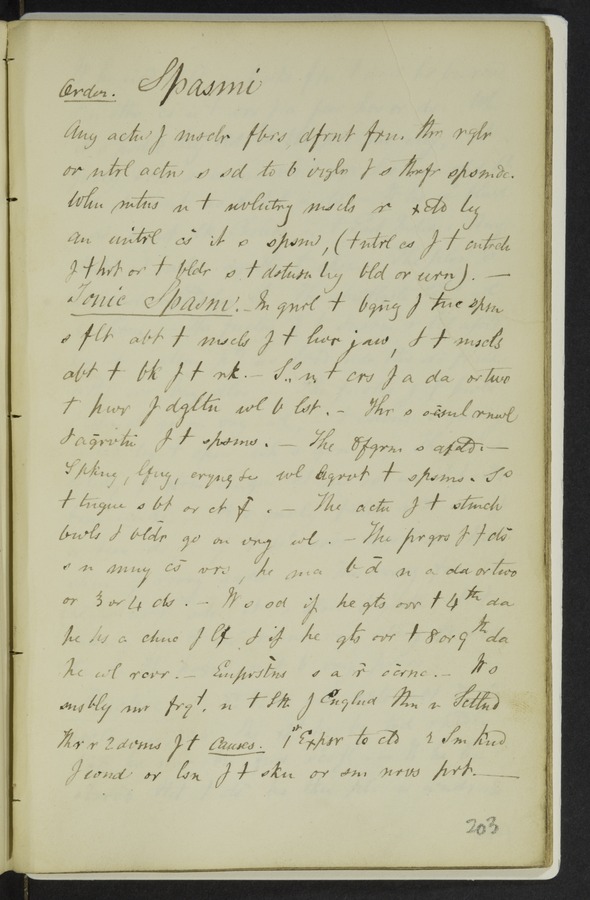 Order. Spasmi
Any actn J msclr fbrs dfrnt frm thr rglr
or ntrl actn s sd to b irglr & s thrfr spsmdc.
Whn mtns n t nvlntry mscls r xctd by
an unntrl cs it s spsm, (t ntrl cs J t cntrctn
J t hrt or t bldr s t dstnsn by bld or urn). —
Tonic Spasm. - In gnrl t bgng J tnc spsm
s flt abt t mscls J t lwr jaw, & t mscls
abt t bk J t nk. - So n t crs J a da or two
t pwr J dgltn wl b lst. - Thr s
& J t spsms. — The s —
Spkng, lfng, wl agrvt t spsms. So
t tngue s bt or ct . — The actn J t stmch
bwls & bldr go on vry wl. — The prgrs J t
s n mny cs vrs, he ma b n a da or two
or 3 or 4 ds. - It s sd if he gts ovr t 4th da
he hs a chnc J lf & if he gts ovr t 8 or 9th da
he wl rcvr. - s a r - It s
mr frqt. n t Sth J England thn n Sctlnd
Thr r 2 J t causes. 1st Expsr to cld 2 Sm knd
J wnd or lsn J t skn or sm nrvs prt. —
203